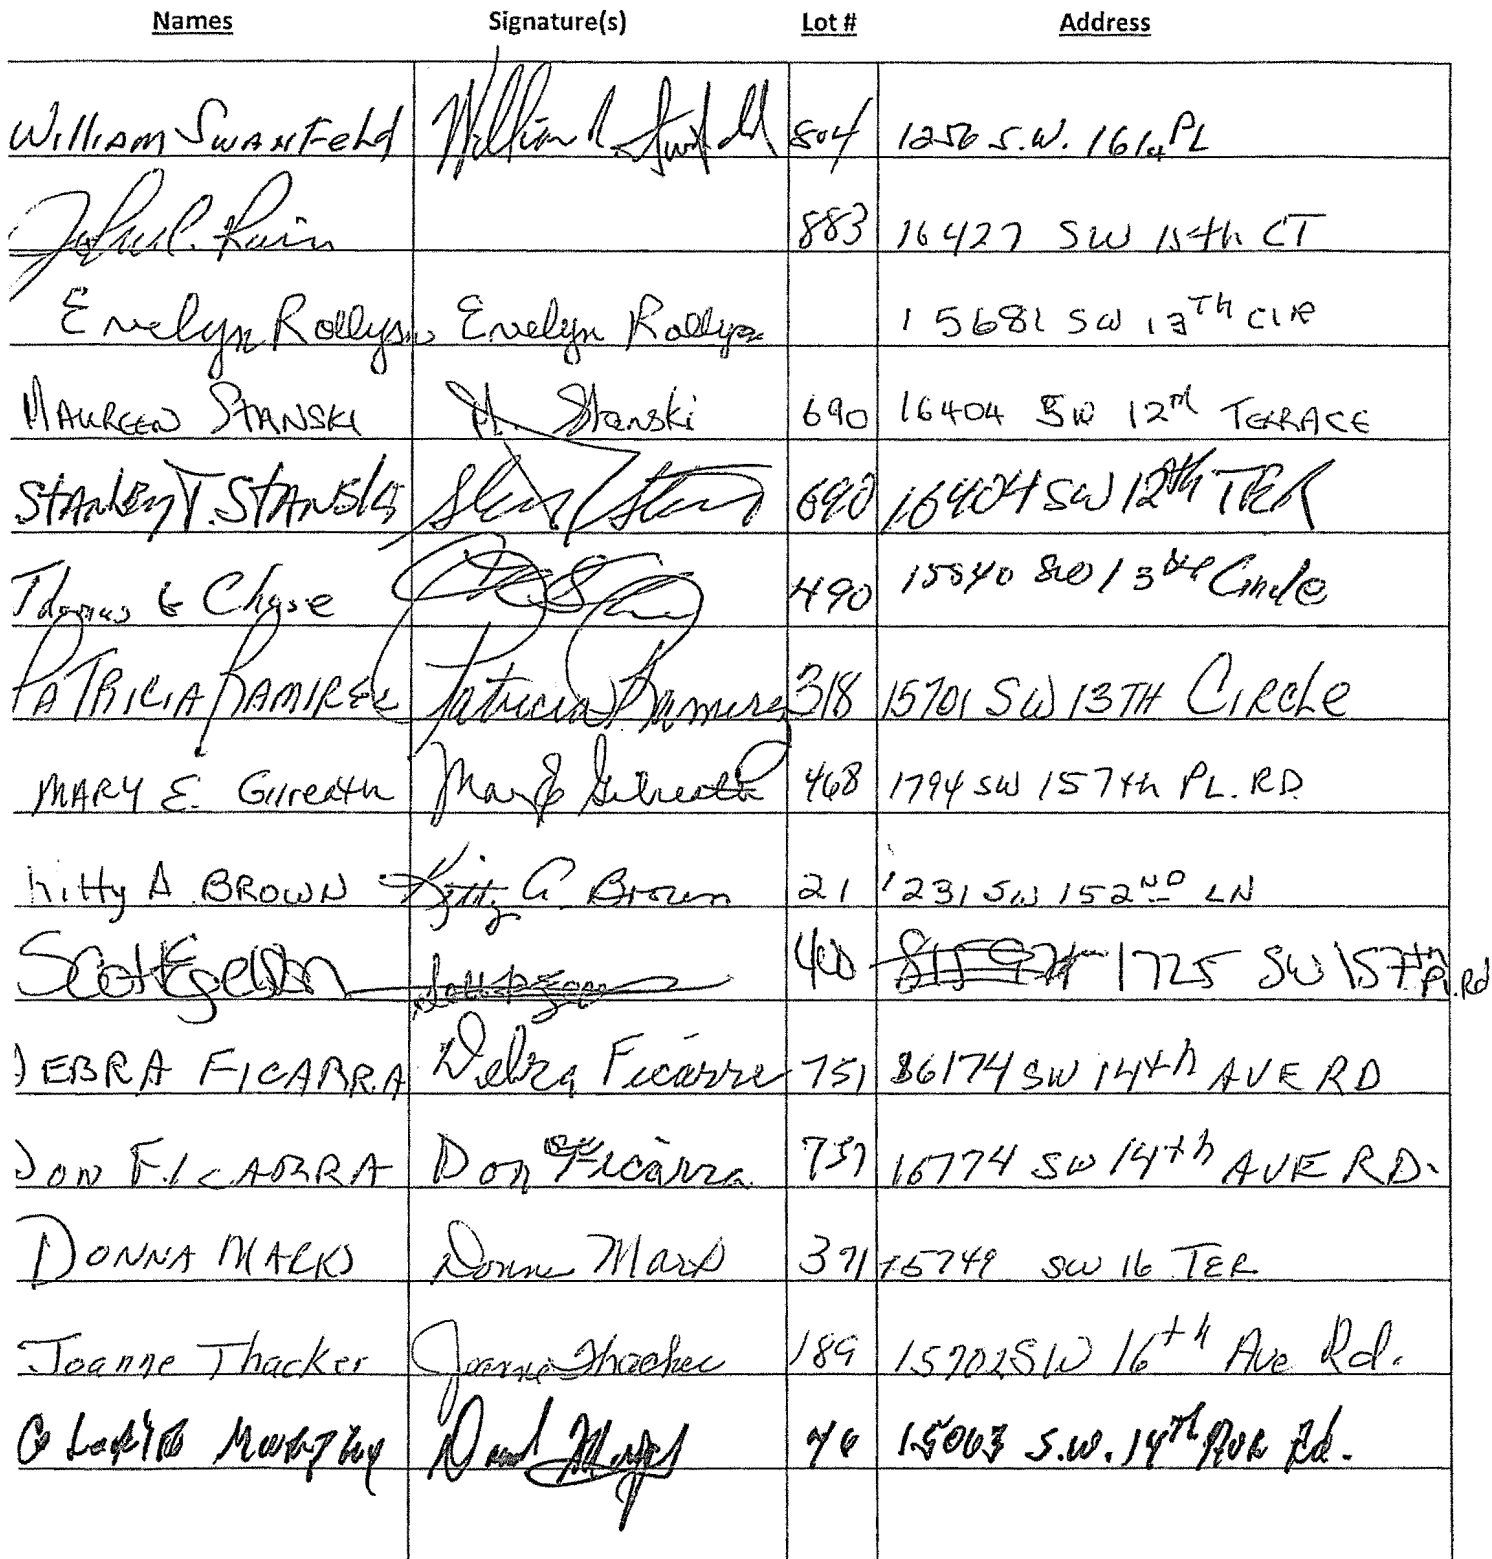 Names Signature(s) Lot # Address
William Swanfeld William Swanfeld 804 1256 S.W. 161st PL
John C. 883 16427 SW 15th CT
Evelyn Rollyson Evelyn Rollyson 15681 SW 13th CIR
MAUREEN STANSKI M Stanski 690 16404 SW 12th TERRACE
STANLEY T. STANSKI 690 16404 SW 12th TER
Thomas E Chase 490 15840 SW 13th Circle
PATRICIA RAMIREZ Patricia Ramirez 318 15701 SW 13TH CIRCLE
MARY E. Gilreath Mary E Gilreath 468 1794 SW 157th PL. RD.
Kitty A BROWN Kitty A. Brown 21 1231 SW 152ND LN
Scott 400 1725 SW 157th Pl. Rd
DEBRA FICARRA Debra Ficarra 751 16174 SW 14th AVE RD
DON FICARRA Don Ficarra 16774 SW 14th AVE RD.
DONNA MARKS Donna Marks 371 15749 SW 16 TER
Joanne Thacker Joanne Thacker 189 15702 SW 16th Ave Rd.
Murphy 46 15063 S.W. 14TH AVE Rd.